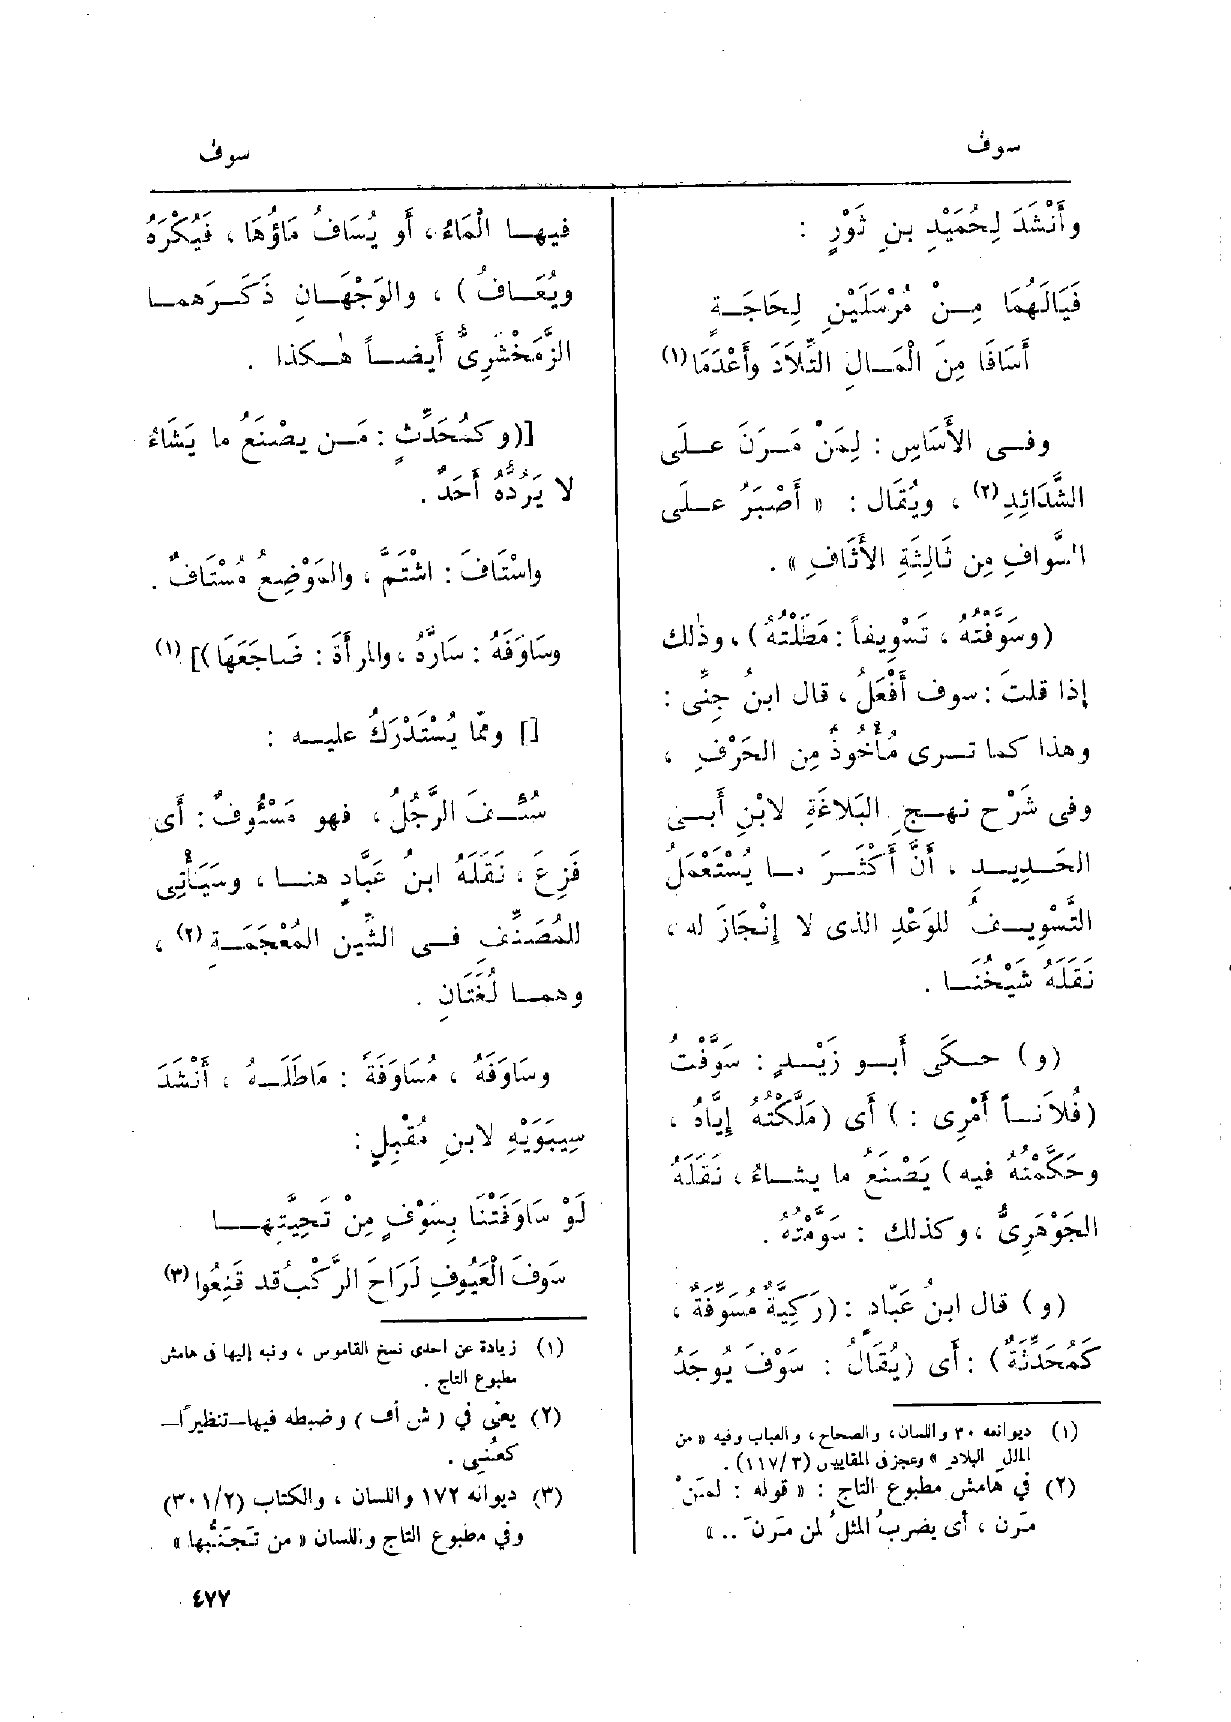 سوف
سوف
وأَنْشَدَ لِحُمَيْدِ بنِ ثَوْرٍ :
فَيَالَهُمَا مِنْ مُرْسَلَيْنِ لِحَاجَةٍ
أَسَافَا مِنَ الْمَالِ التِّلاَدَ وأَعْدَمَا (١)
وفى الأَسَاسِ : لِمَنْ مَرَنَ علَى
الشَّدَائِدِ (٢) ، ويُقَال : « أَصْبَرُ علَى
السَّوافِ مِن ثَالِثَةِ الأَثَافِ » .
(وسَوَّفْتُهُ ، تَسْوِيفاً : مَطَلْتُهُ) ، وذٰلك
إذا قلتَ : سوف أَفْعَلُ ، قال ابنُ جِنِّى :
وهذا كما تَرى مَأْخُوذٌ مِن الحَرْفِ ،
وفى شَرْحِ نهجِ البَلاَغَةِ لابْنِ أَبى
الحَدِيدِ ، أَنَّ أَكْثَرَ ما يُسْتَعْمَلُ
التَّسْوِيفُ للوَعْدِ الذى لا إِنْجَازَ له ،
نَقَلَهُ شَيْخُنَا .
(و) حكَى أَبو زَيْدٍ : سَوَّفْتُ
(فُلاَناً أَمْرِى : ) أَى (مَلَّكْتُهُ إِيَّاهُ ،
وحَكَّمْتُهُ فيه) يَصْنَعُ ما يشاءُ ، نَقَلَهُ
الجَوْهَرِىُّ ، وكذلك : سَوَّمْتُهُ .
(و) قال ابنُ عَبَّادٍ : (رَكِيَّةٌ مُسَوِّفَةٌ ،
كَمُحَدِّثَةٌ) : أَى (يُقَالُ : سَوْفَ يُوجَدُ
(١) ديوانه ٣٠ واللسان، والصحاح، والعباب وفيه « من
المال البلاد » وعجز فى المقاييس (٣/١١٧) .
(٢) في هامش مطبوع التاج : « قوله : لمَنْ
مَرن ، أى يضربُ المثلُ لمن مَرنَ .. »
فيها الْمَاءُ ، أَو يُسَافُ مَاؤُهَا ، فَيُكْرَهُ
ويُعَافُ) ، والوَجْهَانِ ذَكَرَهما
الزَّمَخْشَرِىُّ أَيضاً هٰكذا .
[(و كَمُحَدِّثٍ : مَن يصْنَعُ ما يَشَاءُ
لا يَرُدُّهُ أَحَدٌ .
واسْتَافَ : اشْتَمَّ ، والمَوْضِعُ مُسْتَافٌ .
وسَاوَفَهُ : سَارَّهُ ، والمرأَةَ : ضَاجَعَهَا)] (١)
[] وممّا يُسْتَدْرَكُ عليه :
سُئِفَ الرَّجُلُ ، فهو مَسْئُوفٌ : أَى
فَزِعَ ، نَقَلَهُ ابنُ عَبَّادٍ هنا ، وسَيَأْتِى
للمُصَنِّفِ فى الشِّينِ المُعْجَمَةِ (٢) ،
وهما لُغَتَانِ .
وسَاوَفَهُ ، مُسَاوَفَةً : مَاطَلَهُ ، أَنْشَدَ
سِيبَوَيْهِ لابنِ مُقْبِلٍ :
لَوْ سَاوَفَتْنَا بِسَوْفٍ مِنْ تَحِيَّتِهَا
سَوفَ الْعَيُوفِ لَرَاحَ الرَّكْبُ قد قَنِعُوا (٣)
(١) زيادة عن احدى نسخ القاموس ، ونبه إليها فى هامش
مطبوع التاج .
(٢) يعنى في (ش أف) وضبطه فيها–تنظيرًا–
كعُنِى .
(٣) ديوانه ١٧٢ واللسان ، والكتاب (٢/٣٠١)
وفي مطبوع التاج واللسان « من تَجَنُّبها »
٤٧٧